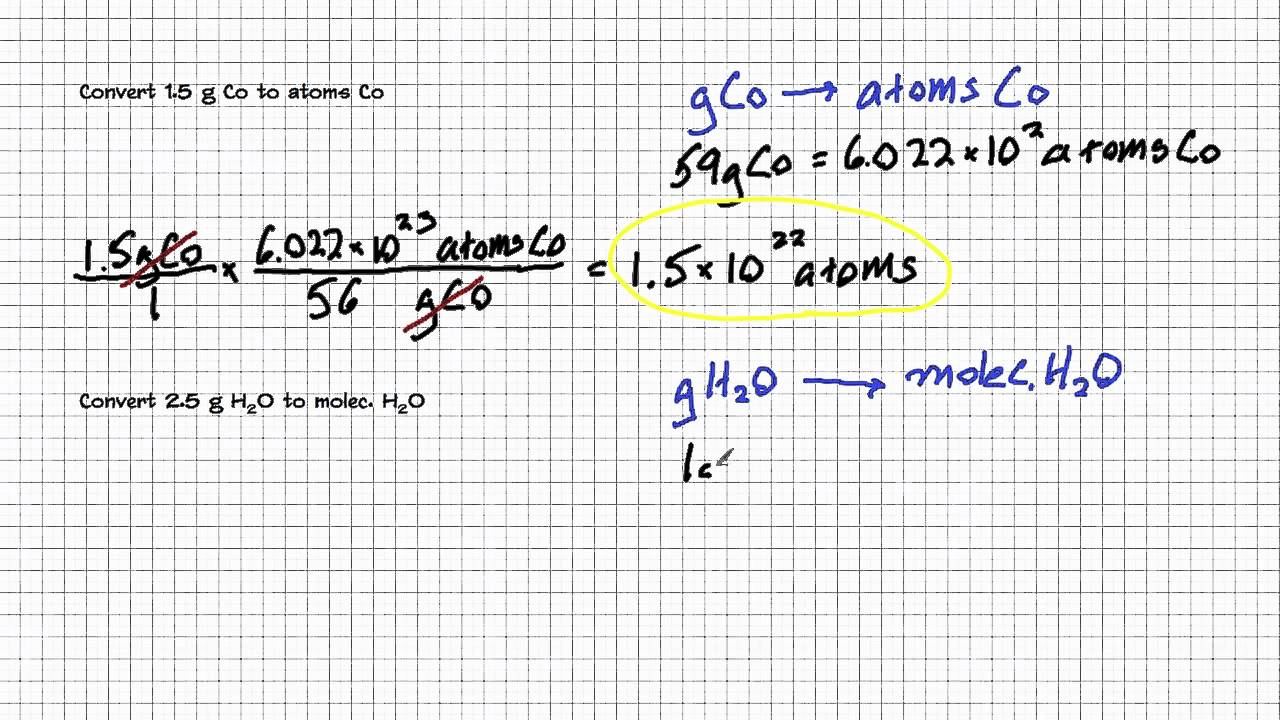 Convert 1.5 g Co to atoms Co
gCo → atoms Co
59gCo = 6.022×10² atoms Co
1.5gCo/1 × 6.022×10²³ atoms Co/56 gCo = 1.5×10²² atoms
Convert 2.5 g H₂O to molec. H₂O
gH₂O → molec. H₂O
1